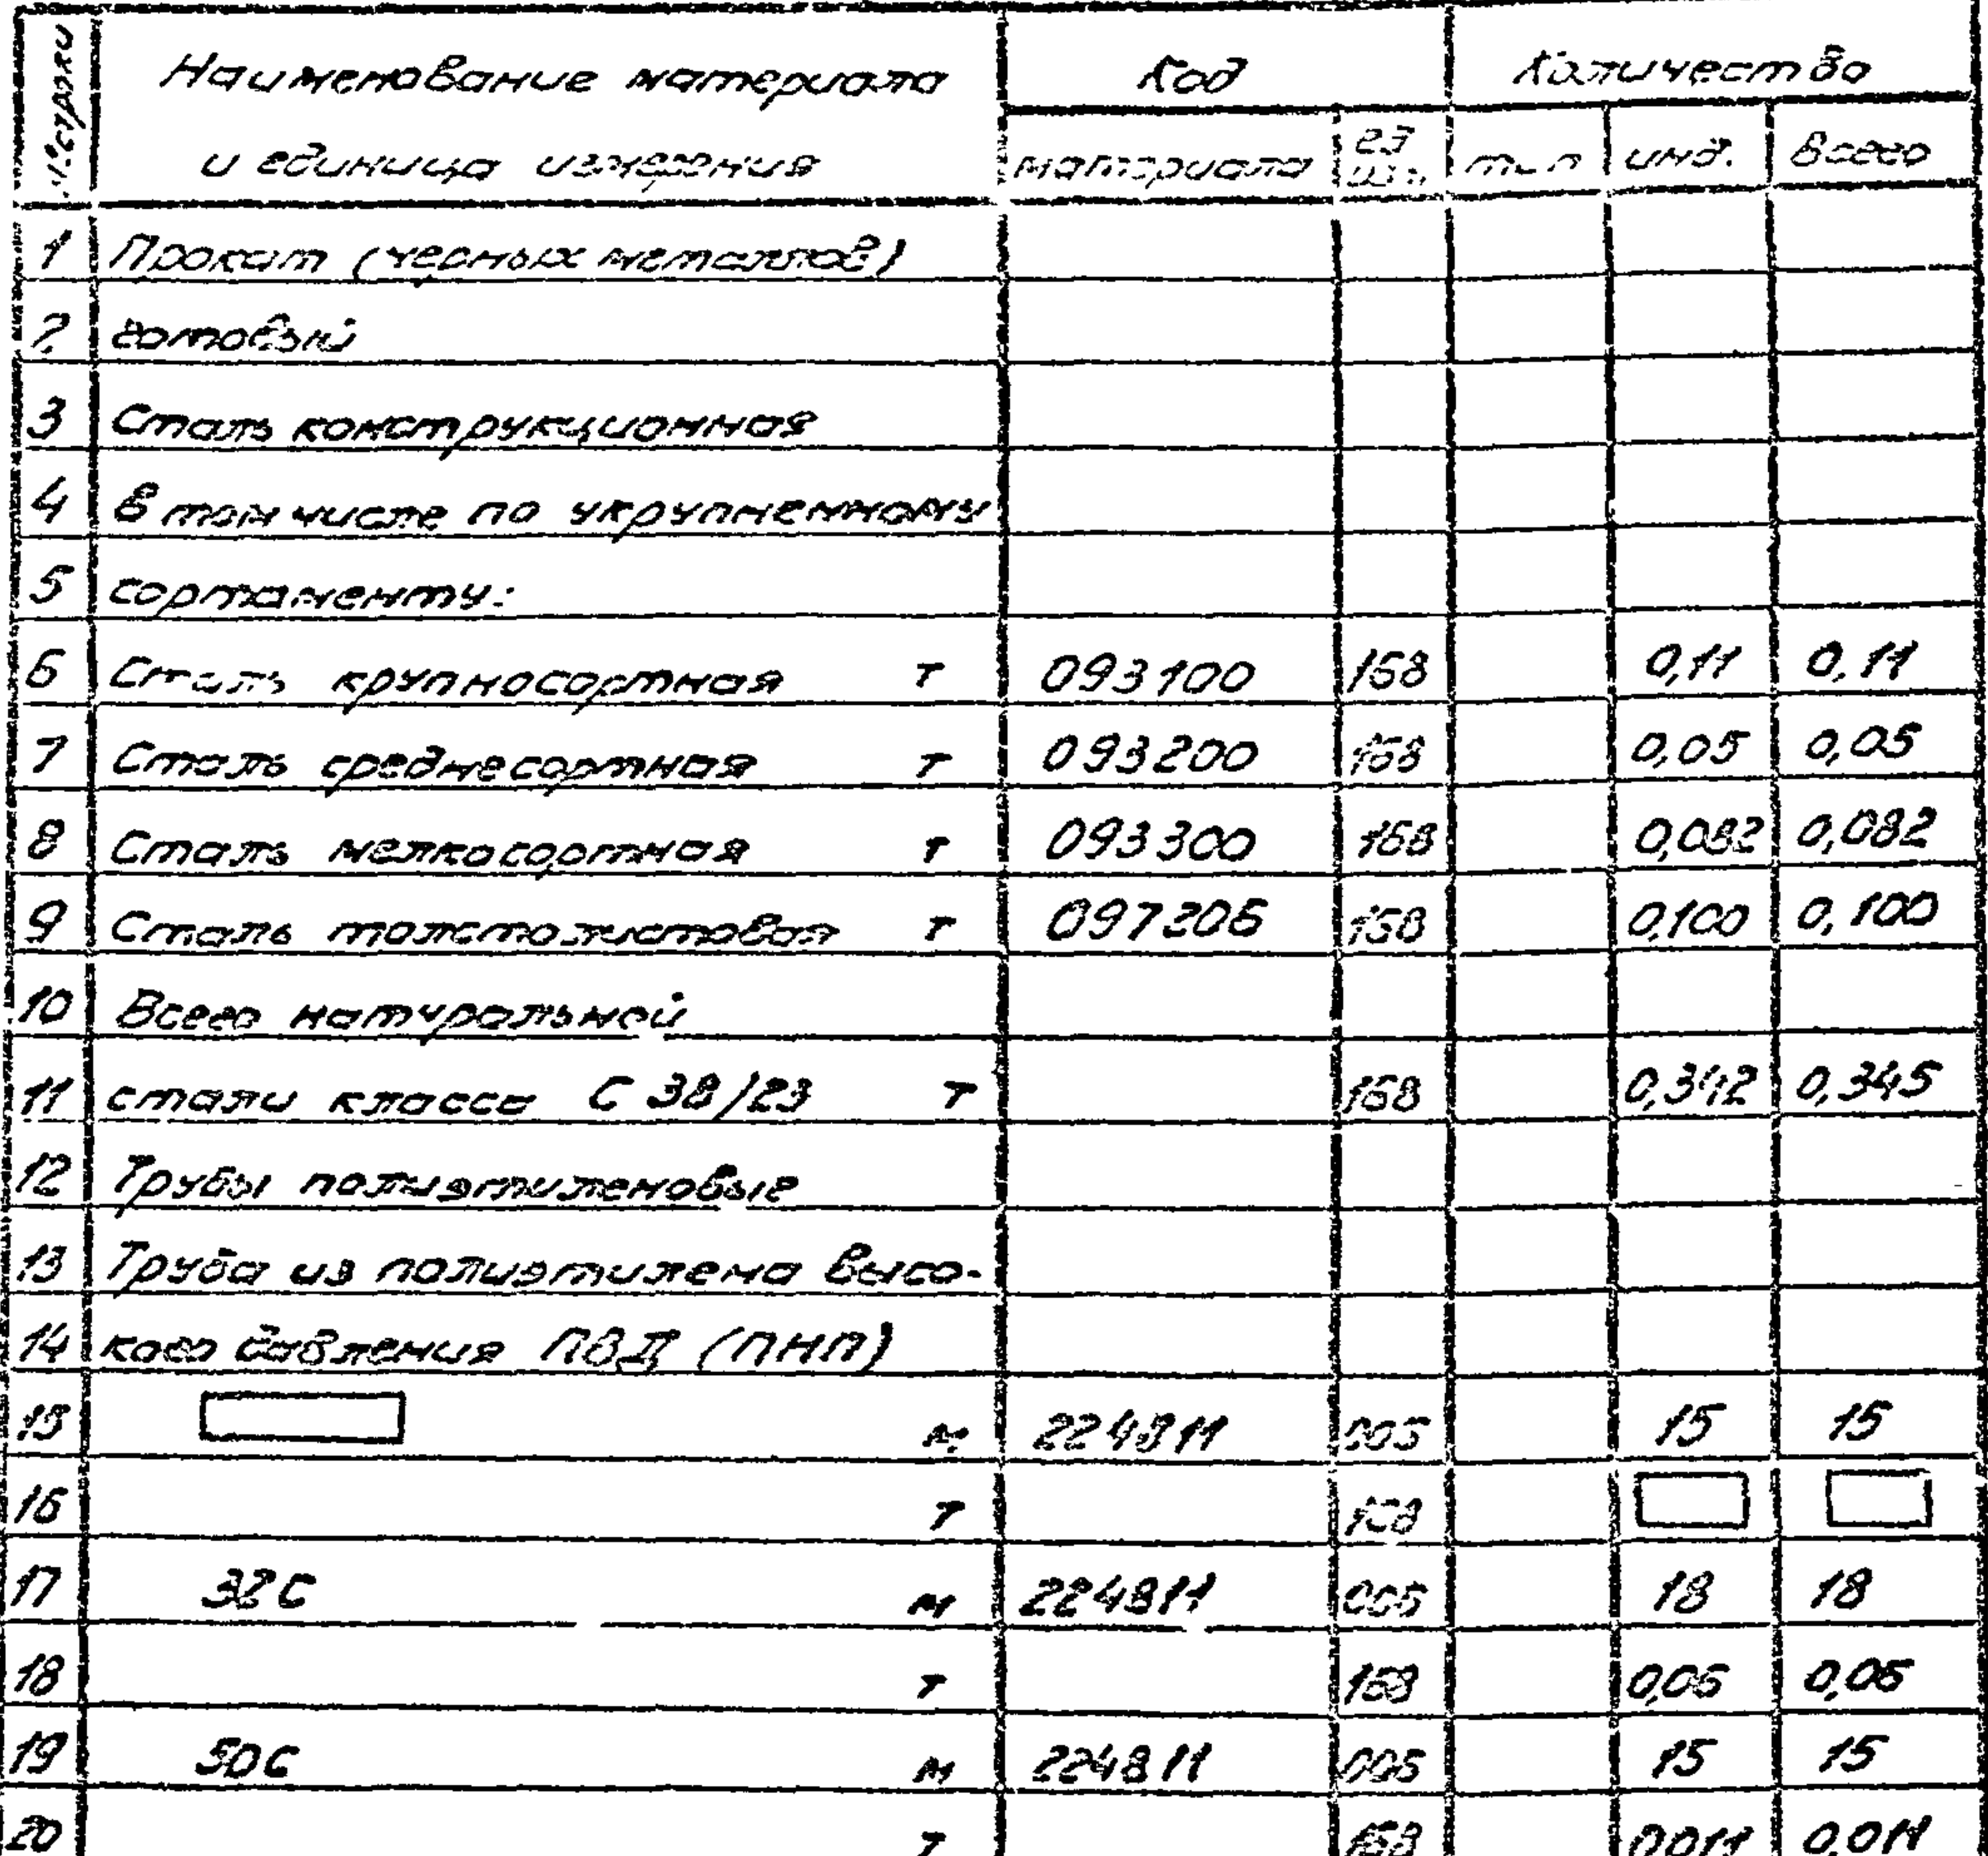 № строки
Наименование материала
и единица измерения
Код
Количество
материала ед. изм. тип инд. Всего
1 Прокат (черных металлов)
2 готовый
3 Сталь конструкционная
4 в том числе по укрупненному
5 сортаменту:
6 Сталь крупносортная т 093100 168 0,11 0,11
7 Сталь среднесортная т 093200 168 0,05 0,05
8 Сталь мелкосортная т 093300 168 0,082 0,082
9 Сталь толстолистовая т 097206 168 0,100 0,100
10 Всего натуральной
11 стали класса С 38/23 т 168 0,342 0,345
12 Трубы полиэтиленовые
13 Труба из полиэтилена высо-
14 кого давления ПВД (ПНП)
15 м 224811 005 15 15
16 т 168
17 32С м 224811 005 18 18
18 т 168 0,06 0,06
19 50С м 224811 005 15 15
20 т 168 0,011 0,011